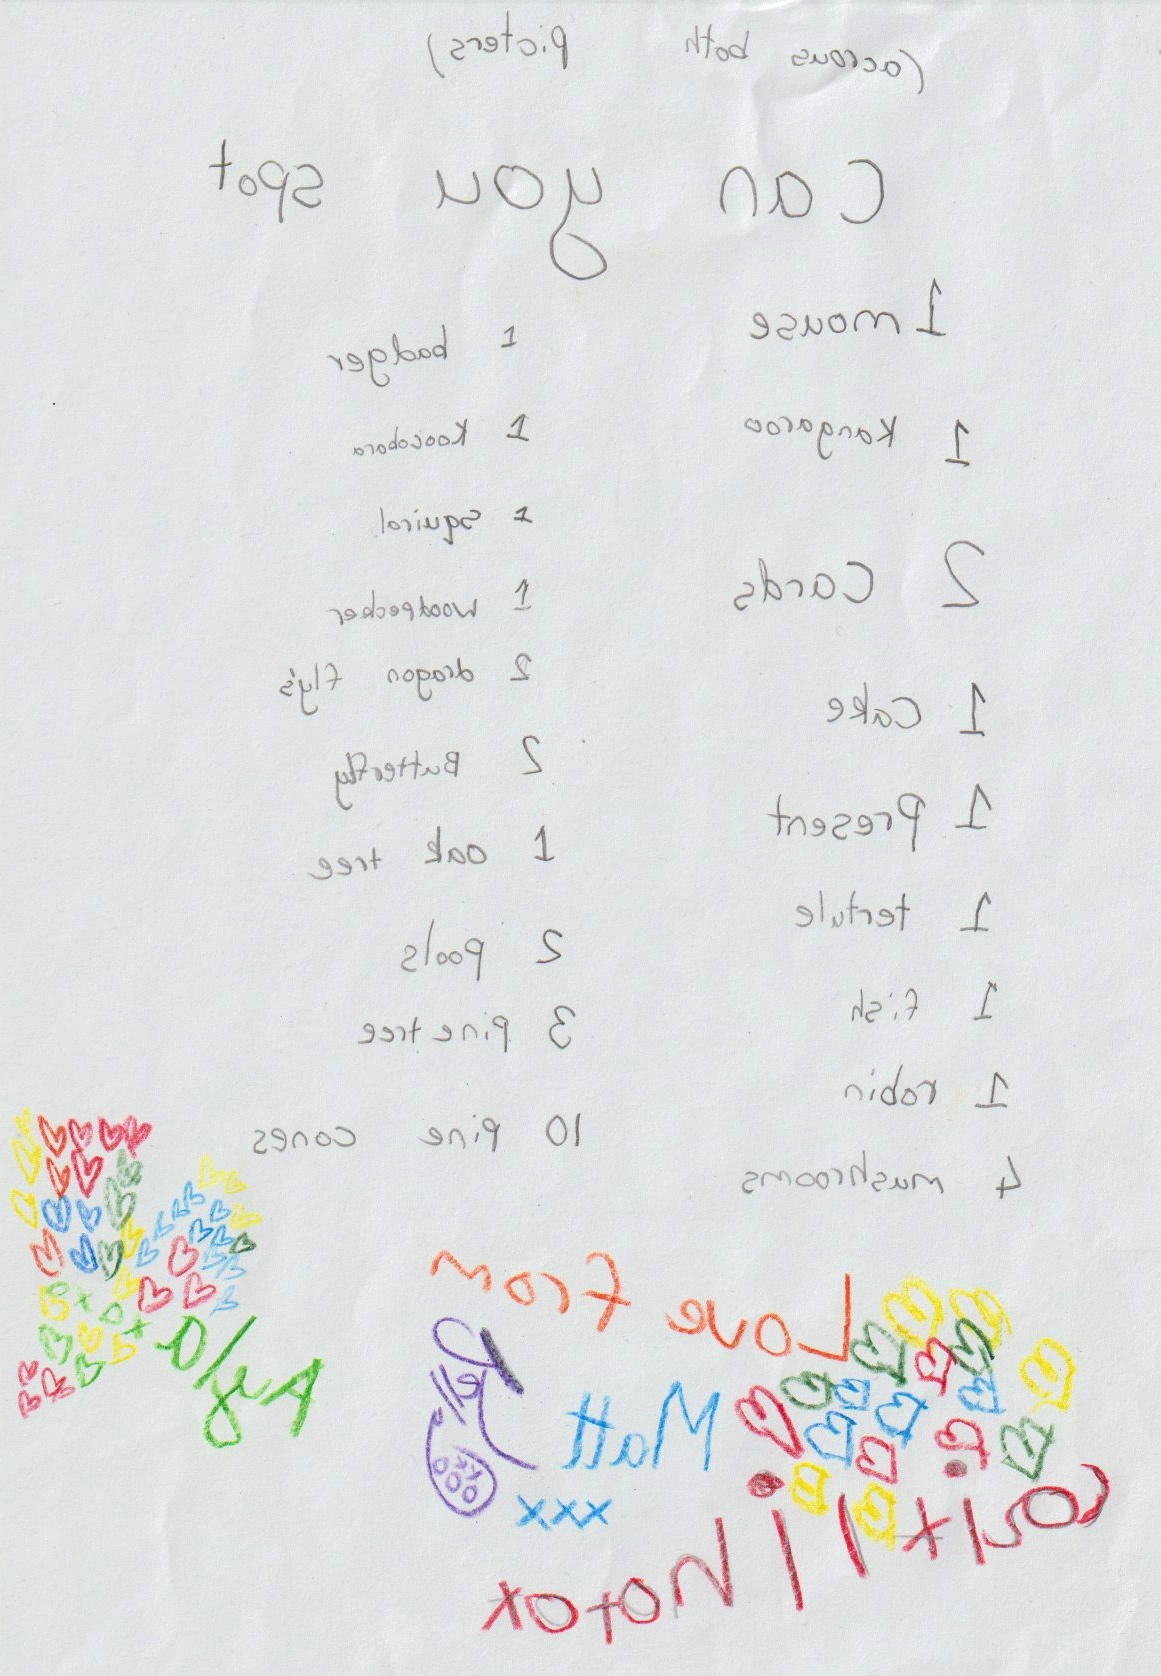 (acrous both picters)
Can you spot
1 mouse
1 Kangaroo
2 Cards
1 Cake
1 Present
1 tertule
1 fish
1 robin
4 mushrooms
1 badger
1 Koocobora
1 Squiral
1 woodpecker
2 dragon fly's
2 Butterfly
1 oak tree
2 pools
3 pine tree
10 pine cones
Love From
Matt
xxx
Ayla